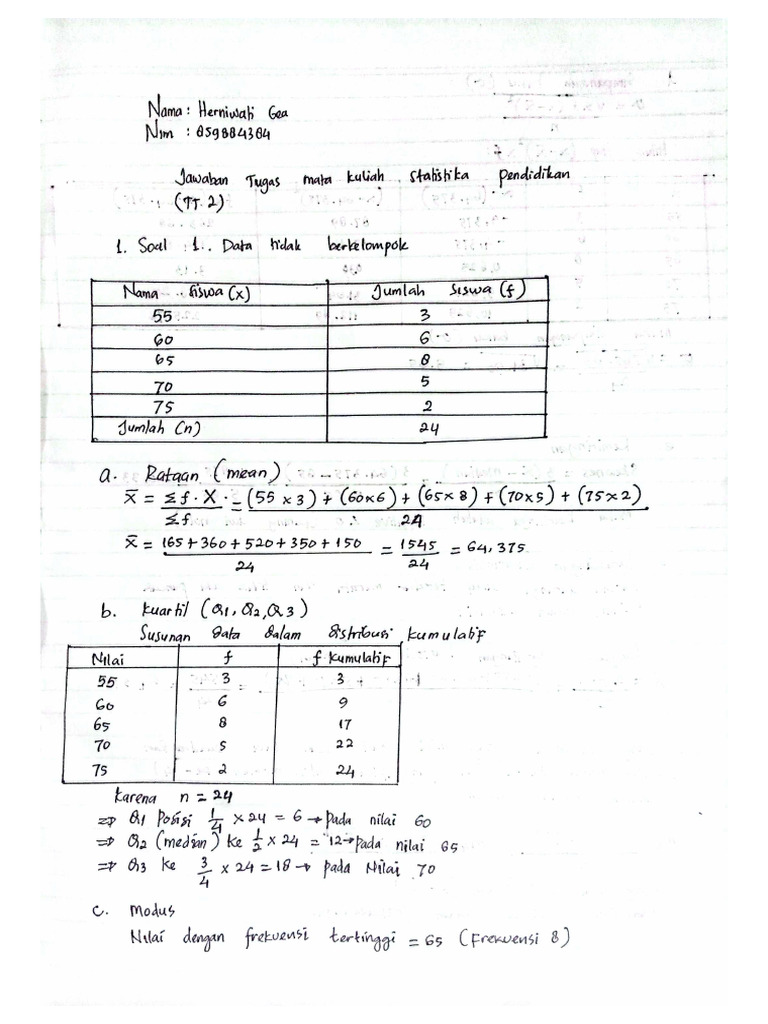 Nama : Herniwati Gea
Nim : 859884384
Jawaban Tugas mata kuliah statistika pendidikan
(TT. 2)
1. Soal : 1. Data tidak berkelompok
Nama Siswa (x) Jumlah Siswa (f)
55 3
60 6
65 8
70 5
75 2
Jumlah (n) 24
a. Rataan (mean)
x̄ = Σf · X = (55 x 3) + (60x6) + (65x 8) + (70x5) + (75x2)
Σf 24
x̄ = 165 + 360 + 520 + 350 + 150 = 1545 = 64,375
24 24
b. Kuartil (Q1, Q2, Q3)
Susunan Data dalam distribusi kumulatif
Nilai f f kumulatif
55 3 3
60 6 9
65 8 17
70 5 22
75 2 24
Karena n = 24
⇒ Q1 Posisi 1/4 x 24 = 6 → pada nilai 60
⇒ Q2 (median) ke 1/2 x 24 = 12 → pada nilai 65
⇒ Q3 ke 3/4 x 24 = 18 → pada Nilai 70
c. Modus
Nilai dengan frekuensi tertinggi = 65 (Frekuensi 8)